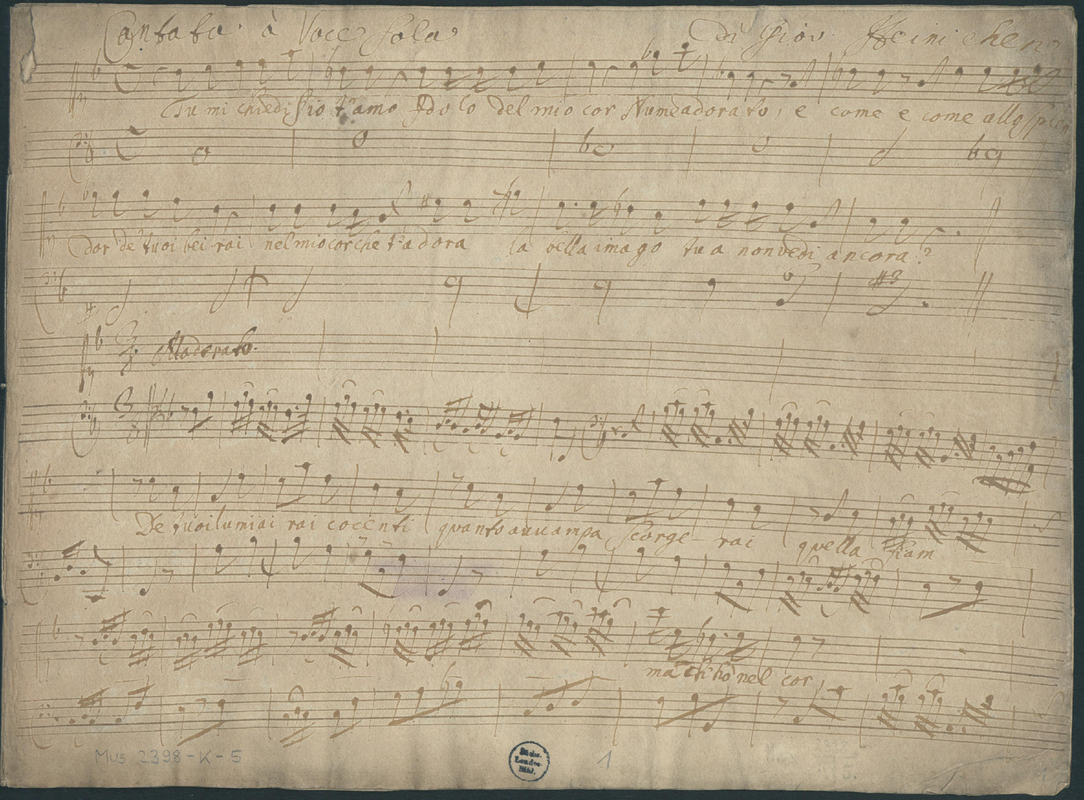 Cantata à Voce Sola Di Giov. Heinichen
Tu mi chiedi s'io t'amo Idolo del mio cor Nume adorato, e come e come allo splen
dor de' tuoi bei rai nel mio cor che t'adora la bella imago tua non vedi ancora?
Moderato.
De tuoi lumi ai rai cocenti quanto auuampa scorge rai quella fiam
ma ch'ho nel cor,
Mus 2398-K-5
Sächs.
Landes
Bibl.
1